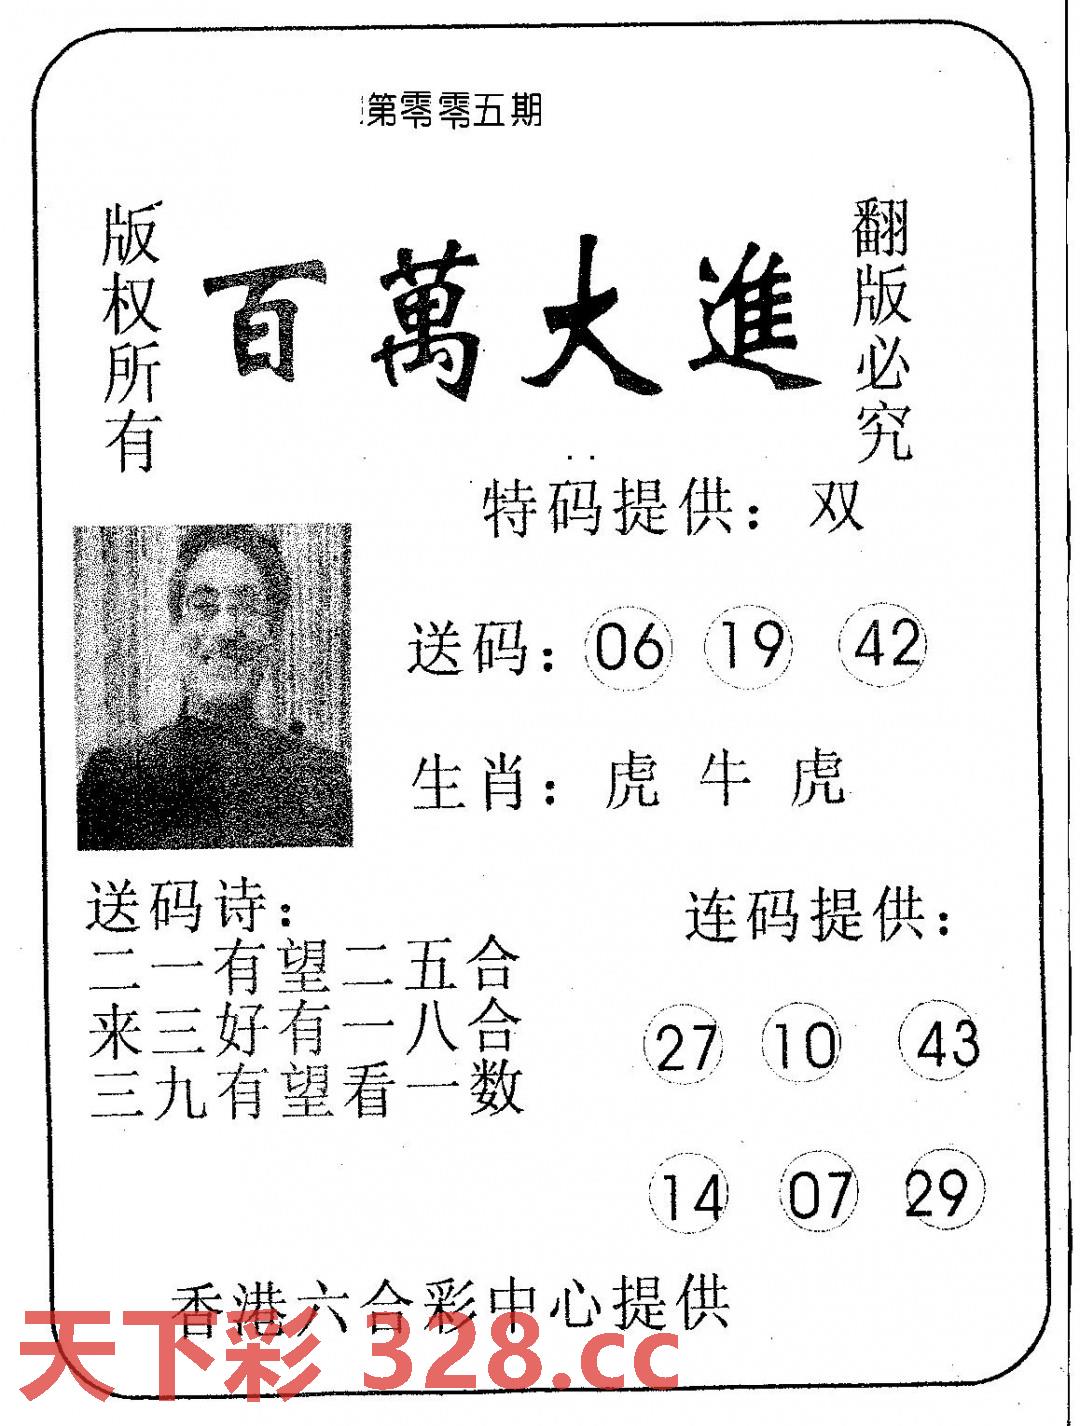 第零零五期
版权所有
百萬大進
翻版必究
特码提供：双
送码：06 19 42
生肖：虎 牛 虎
送码诗：
二一有望二五合
来三好有一八合
三九有望看一数
连码提供：
27 10 43
14 07 29
香港六合彩中心提供
天下彩 328.cc